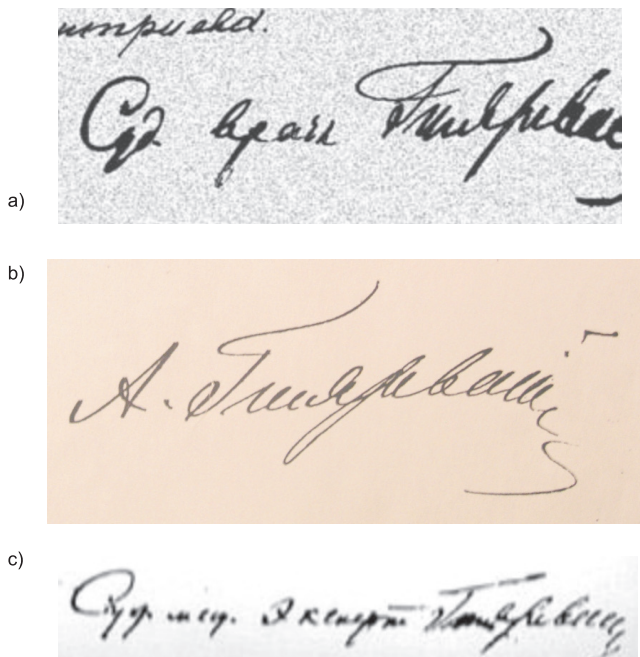 a)
Суд врач Гилярeвс
b)
А. Гиляревский
c)
Суд. мед. Эксперт Гиляревский